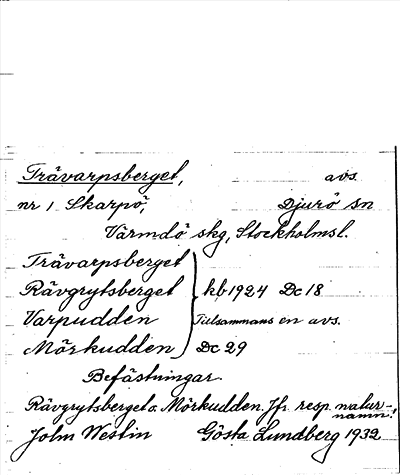 Trävarpsberget, avs.
nr 1 Skarpö, Djurö sn
Värmdö skg, Stockholmsl.
Trävarpsberget
Rävgrytsberget kb 1924 Dc 18
Varpudden Tillsammans en avs.
Mörkudden Dc 29
Befästningar.
Rävgrytsberget o. Mörkudden. Jfr resp. natur-
namn!
John Westin Gösta Lundberg 1932